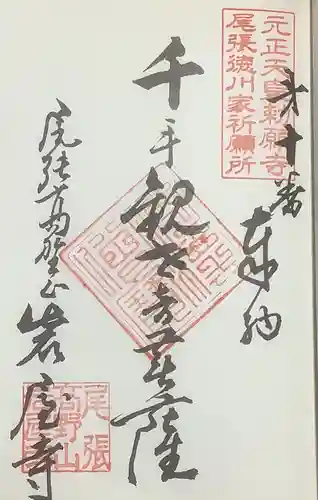 元正天皇勅願寺
尾張徳川家祈願所
第十番
奉納
千手観世音菩薩
尾張高野山
岩屋寺
尾張
高野山